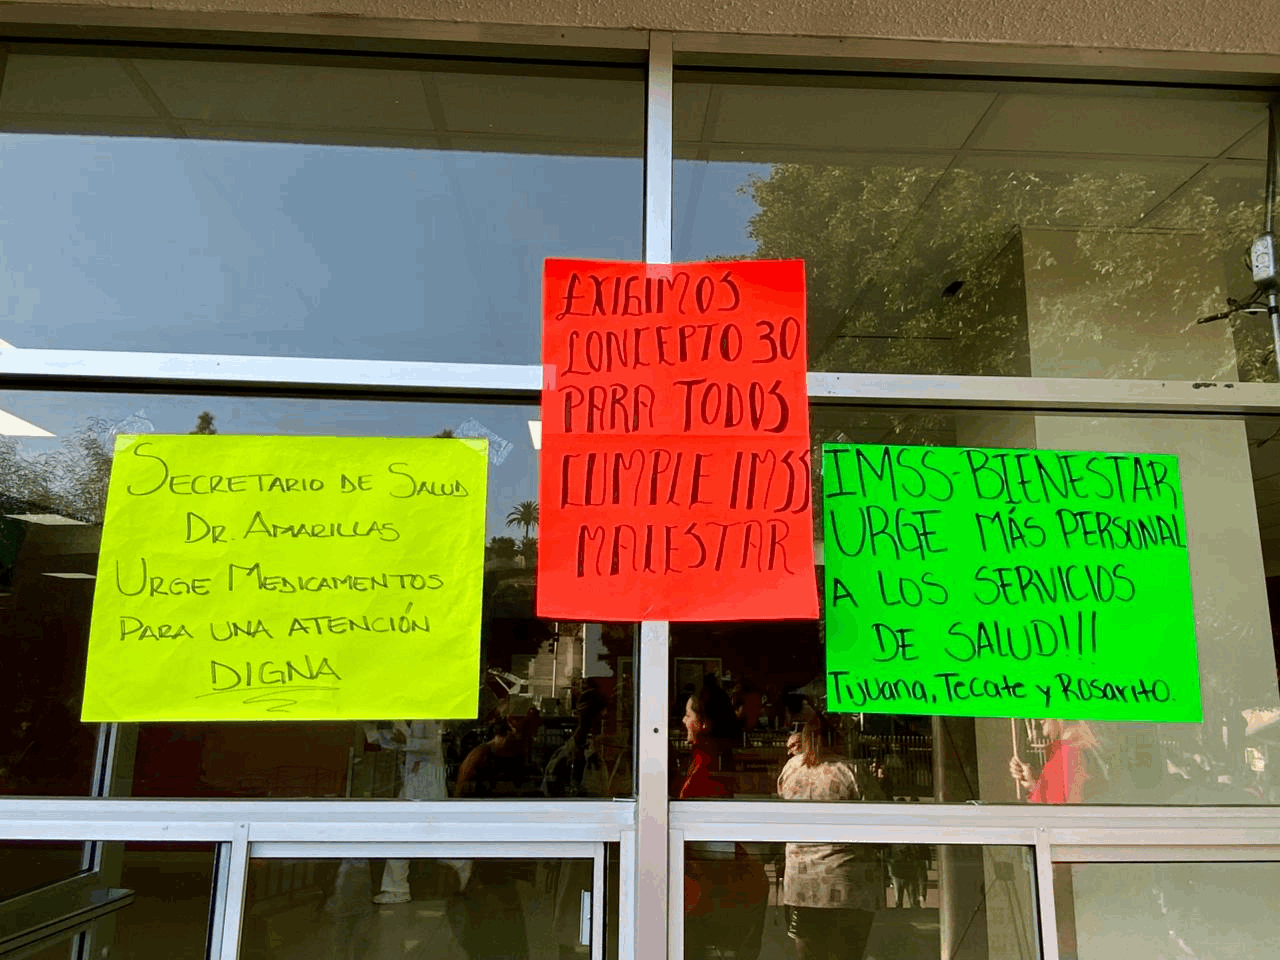 SECRETARIO DE SALUD
DR. AMARILLAS
URGE MEDICAMENTOS
PARA UNA ATENCIÓN
DIGNA
EXIGIMOS
CONCEPTO 30
PARA TODOS
CUMPLE IMSS
MALESTAR
IMSS-BIENESTAR
URGE MÁS PERSONAL
A LOS SERVICIOS
DE SALUD!!!
Tijuana, Tecate y Rosarito.